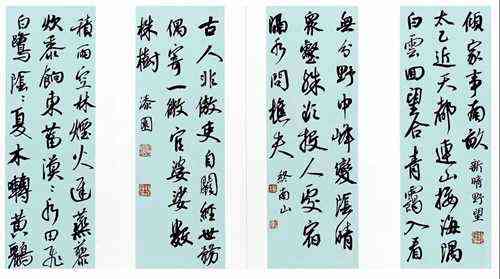 傾家事南畝 新晴野望
太乙近天都連山接海隅
白雲回望合青靄入看
無分野中峰變陰晴
眾壑殊欲投人處宿
隔水問樵夫 終南山
古人非傲吏自闕經世務
偶寄一微官婆娑數
株樹 漆園
積雨空林煙火遲蒸藜
炊黍餉東菑漠〻水田飛
白鷺陰〻夏木轉黃鸝